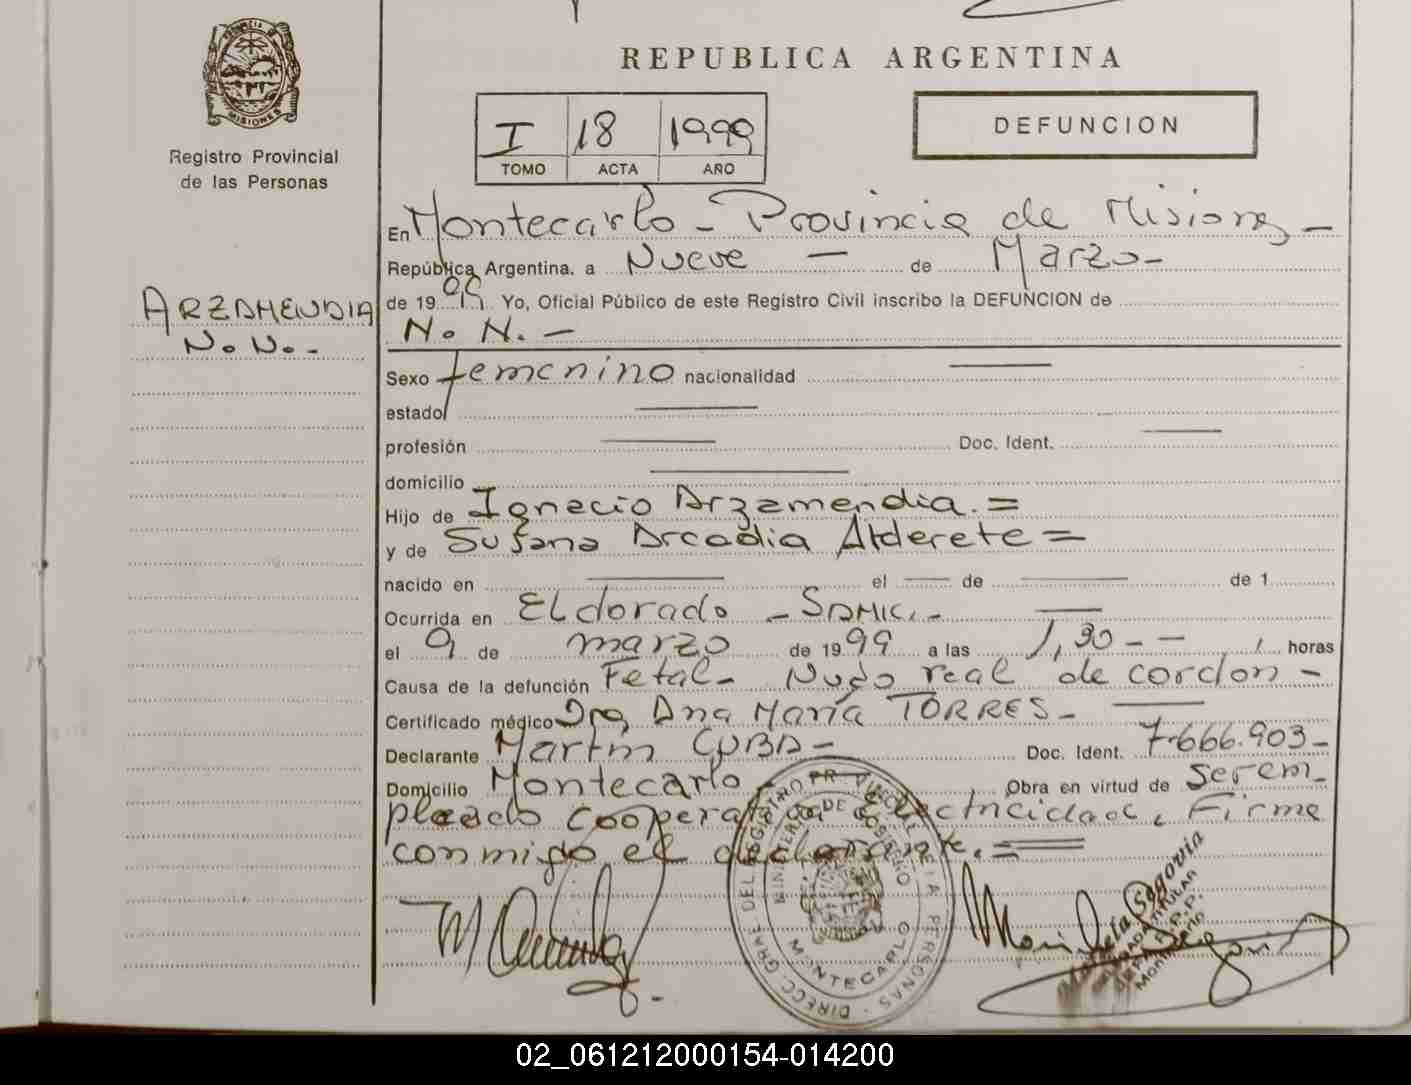 REPUBLICA ARGENTINA
PROVINCIA DE
MISIONES
Registro Provincial
de las Personas
I 18 1999
TOMO ACTA AÑO
DEFUNCION
En Montecarlo - Provincia de Misiones -
República Argentina, a Nueve - de Marzo -
de 19 99 Yo, Oficial Público de este Registro Civil inscribo la DEFUNCION de
N. N. -
ARZAMENDIA
N. N. -
Sexo femenino nacionalidad
estado
profesión Doc. Ident.
domicilio
Hijo de Ignacio Arzamendia. =
y de Susana Arcadia Alderete =
nacido en el de de 1
Ocurrida en Eldorado - SAMIC. -
el 9 de marzo de 19 99 a las 1,30 - - horas
Causa de la defunción Fetal - Nudo real de cordon -
Certificado médico Dra, Ana María TORRES -
Declarante Martin CUBA - Doc. Ident. 7.666.903 -
Domicilio Montecarlo - Obra en virtud de ser em-
pleado cooperativa electricidad, Firma
conmigo el declarante. =
DIRECC. GRAL DEL REGISTRO PROVINCIAL DE LAS PERSONAS
MINISTERIO DE GOBIERNO
MONTECARLO
Segovia
TITULAR
R.P.P.
02_061212000154-014200